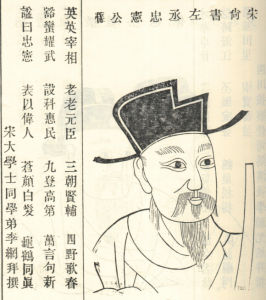 宋尚書左丞忠憲公
英英宰相 老老元臣 三朝賢輔 四野歌春
谿蠻耀武 設科惠民 九登高第 萬言句新
諡曰忠憲 表以偉人 蒼顏白髮 同眞
宋大學士同學弟李綱拜撰